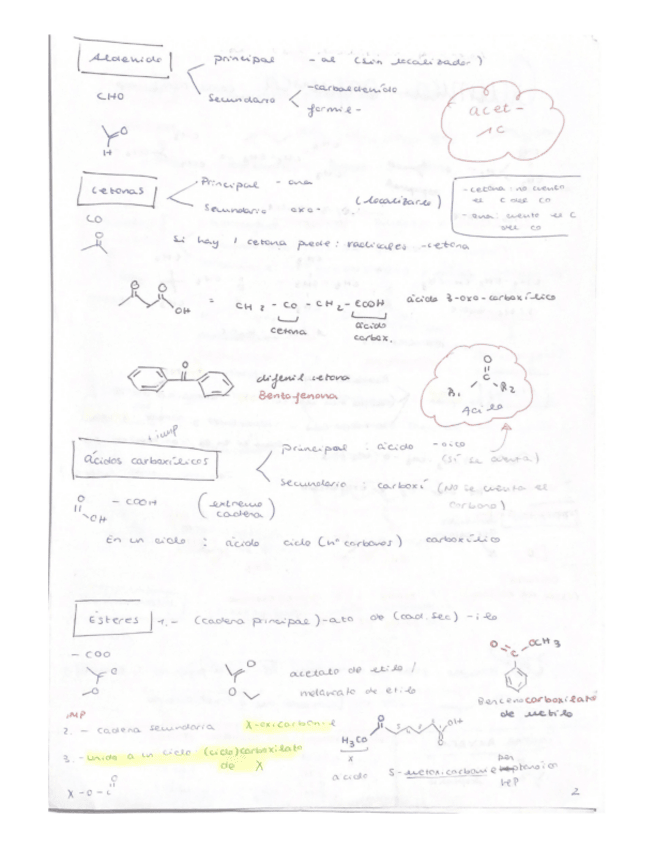 Aldehido
principal -al (sin localizador)
CHO
secundario -carbaldehido
formil-
acet-
1C
O
H
Cetonas
Principal -ona
secundario oxo- (localizarlo)
-cetona: no cuento
el C del CO
-ona: cuento el C
del CO
CO
O
Si hay 1 cetona puede: radicales -cetona
O O
OH
= CH2 - CO - CH2 - COOH ácido 3-oxo-carboxílico
cetona
ácido
carbox.
O
difenil cetona
Benzofenona
O
C
R1 R2
Acilo
imp
Ácidos carboxílicos
principal : ácido -oico
(Sí se cuenta)
secundario : carboxi (No se cuenta el
carbono)
O
OH
- COOH
(extremo
cadena)
En un ciclo : ácido ciclo (nº carbonos) carboxílico
Ésteres
1.- (cadena principal)-ato de (cad. sec) -ilo
- COO
O
O
O
O
acetato de etilo /
de etilo
O OCH3
C
Bencenocarboxilato
de metilo
IMP
2. - cadena secundaria X-oxicarbonil
3. - unido a un ciclo (ciclo)carboxilato
de X
O
H3CO
X
OH
O
ácido 5-metoxicarbonil
X - O - C
O
2